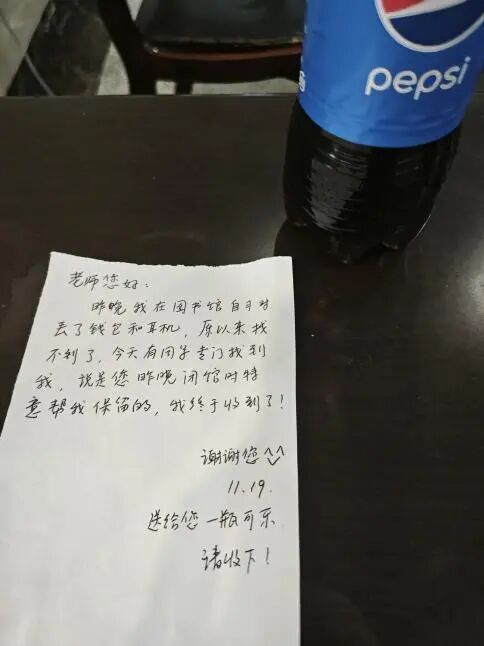 pepsi
老师您好:
昨晚我在图书馆自习时
丢了钱包和耳机, 原以来找
不到了, 今天有同学专门找到
我, 说是您昨晚闭馆时特
意帮我保留的, 我终于收到了!
谢谢您^^
11.19.
送给您一瓶可乐
请收下!